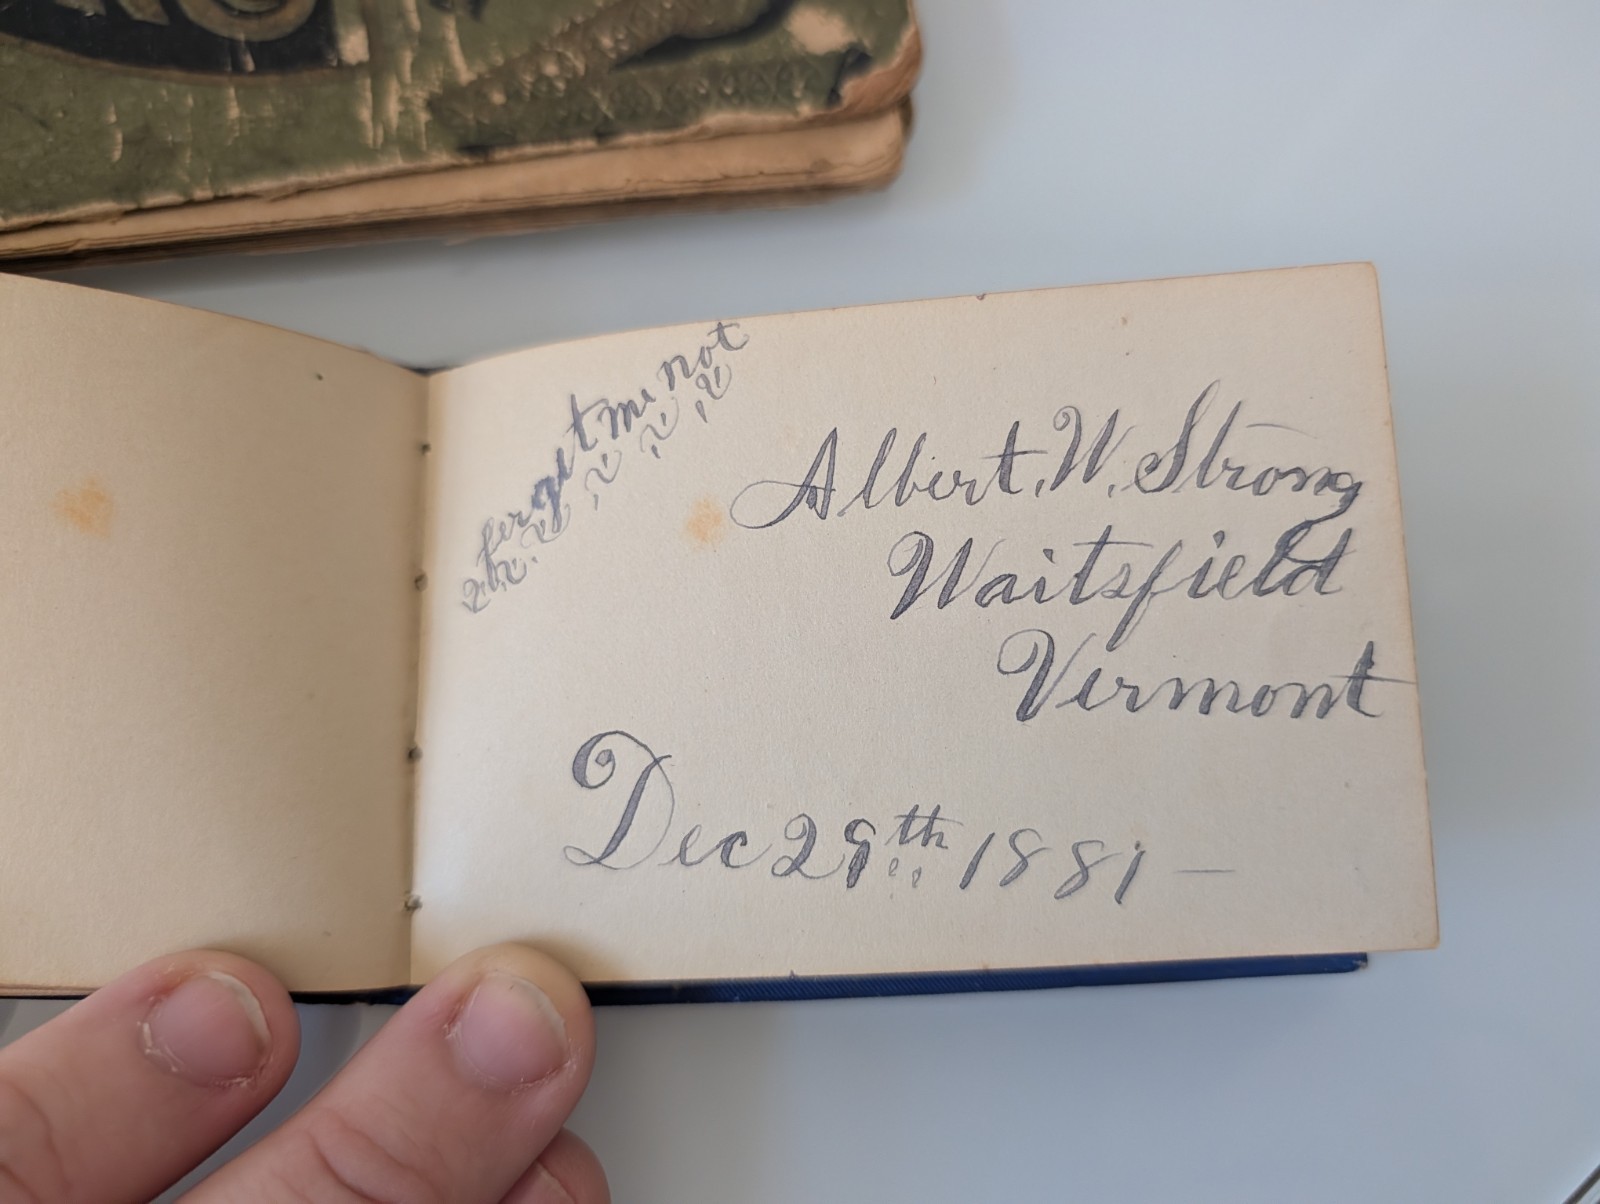 forget me not
Albert. W. Strong
Waitsfield
Vermont
Dec 29th 1881 —